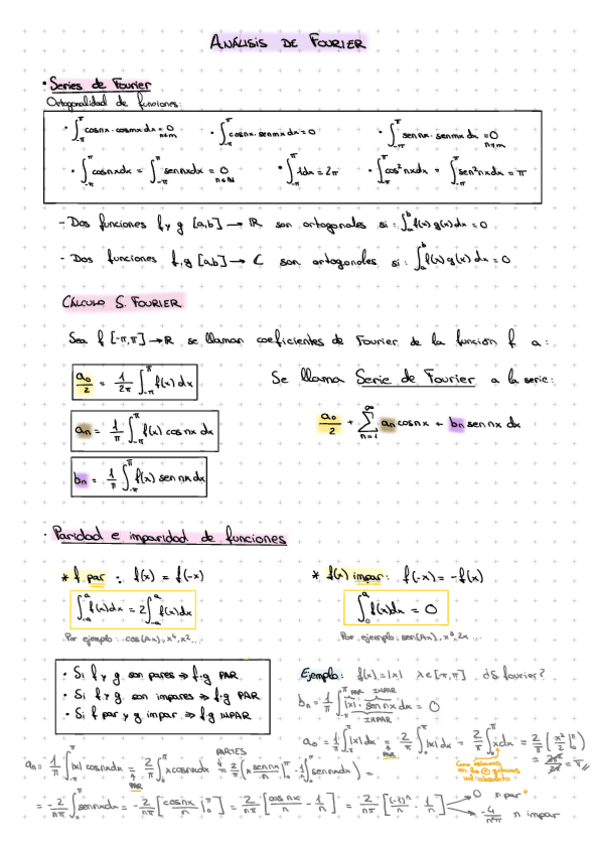 ANÁLISIS DE FOURIER
• Series de Fourier
Ortogonalidad de funciones:
• ∫_{-π}^{π} cosnx · cosmx dx = 0 n≠m • ∫_{-π}^{π} cosnx · senmx dx = 0 • ∫_{-π}^{π} sennx · senmx dx = 0 n≠m
• ∫_{-π}^{π} cosnx dx = ∫_{-π}^{π} sennx dx = 0 n∈N • ∫_{-π}^{π} 1dx = 2π • ∫_{-π}^{π} cos²nx dx = ∫_{-π}^{π} sen²nx dx = π
- Dos funciones f y g [a,b] → R son ortogonales si: ∫_a^b f(x) g(x) dx = 0
- Dos funciones f, g [a,b] → C son ortogonales si: ∫_a^b f(x) g(x) dx = 0
CÁLCULO S. FOURIER
Sea f [-π,π] → R se llaman coeficientes de Fourier de la función f a:
a₀/2 = 1/2π ∫_{-π}^{π} f(x) dx Se llama Serie de Fourier a la serie:
aₙ = 1/π ∫_{-π}^{π} f(x) cos nx dx a₀/2 + ∑_{n=1}^{∞} aₙ cosnx + bₙ sen nx dx
bₙ = 1/π ∫_{-π}^{π} f(x) sen nx dx
• Paridad e imparidad de funciones
* f par : f(x) = f(-x) * f(x) impar: f(-x) = -f(x)
∫_{-a}^{a} f(x) dx = 2∫_{-a}^{a} f(x) dx ∫_0^a f(x)dx = 0
Por ejemplo: cos(Ax), x⁴, x²... Por ejemplo, sen(Ax), x³, 2x ...
• Si f y g son pares ⇒ f·g PAR
• Si f y g son impares ⇒ f·g PAR
• Si f par y g impar ⇒ f·g IMPAR
Ejemplo: f(x) = |x| x∈[-π,π] ¿S fourier?
PAR IMPAR
bₙ = 1/π ∫_{-π}^{π} |x| · sen nx dx = 0
IMPAR
a₀ = 1/π ∫_{-π}^{π} |x| dx = 2/π ∫_0^π |x| dx = 2/π ∫_0^π x dx = 2/π (x²/2 |_0^π)
PAR
= π //
PARTES
aₙ = 1/π ∫_{-π}^{π} |x| cosnx dx = 2/π ∫_0^π x cosnx dx = 2/π (x sen nx/n |_0^π - 1/n ∫_0^π sennx dx) =
PAR
= -2/nπ ∫_0^π sennx dx = -2/nπ [-cosnx/n |_0^π] = 2/nπ [cos nπ/n - 1/n] = 2/nπ [(-1)ⁿ/n - 1/n] → 0 n par
→ -4/n²π n impar